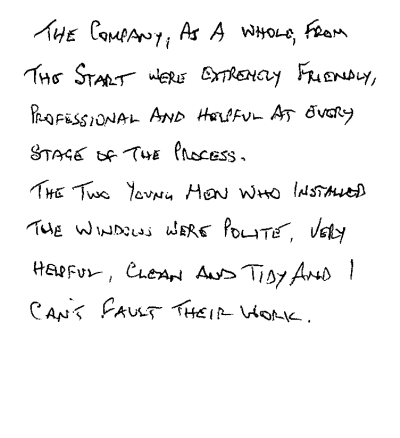 THE COMPANY, AS A WHOLE, FROM
THE START WERE EXTREMELY FRIENDLY,
PROFESSIONAL AND HELPFUL AT EVERY
STAGE OF THE PROCESS.
THE TWO YOUNG MEN WHO INSTALLED
THE WINDOWS WERE POLITE, VERY
HELPFUL, CLEAN AND TIDY AND I
CAN'T FAULT THEIR WORK.